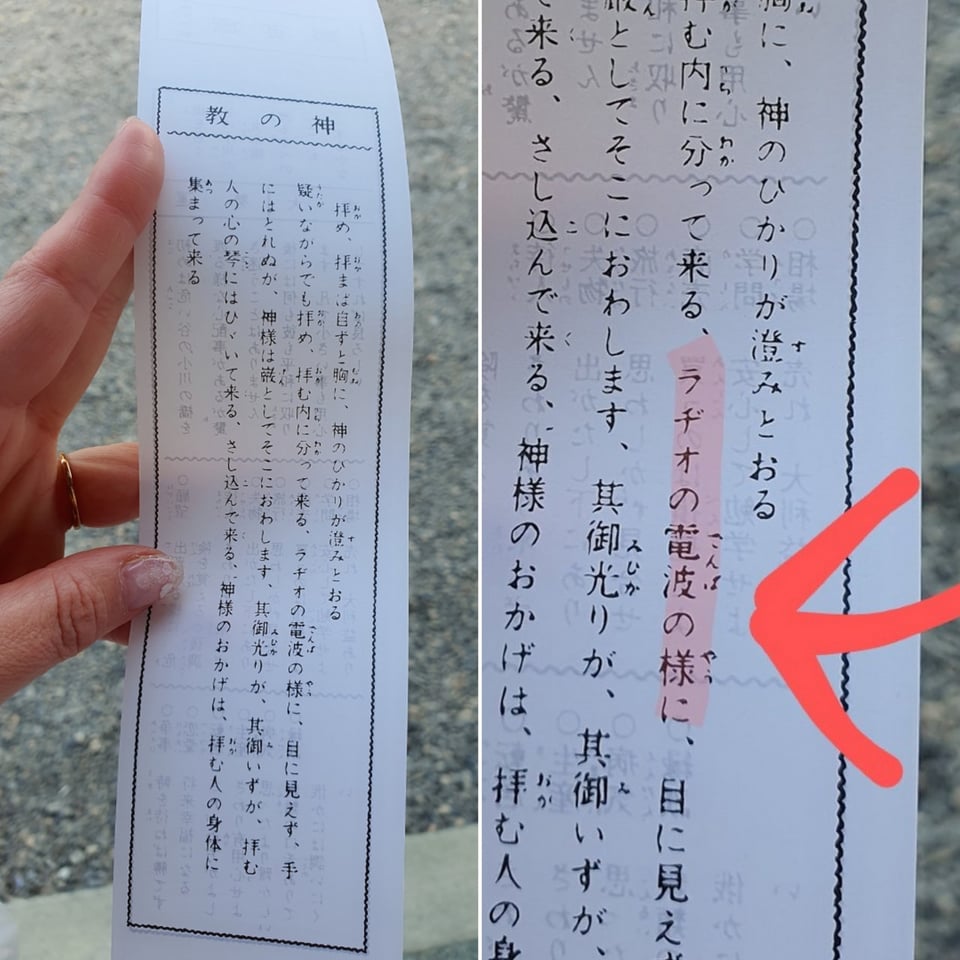 神の教
拝め、拝まば自ずと胸に、神のひかりが澄みとおる
疑いながらでも拝め、拝む内に分って来る、ラヂオの電波の様に、目に見えず、手
にはとれぬが、神様は厳としてそこにおわします、其御光りが、其御いずが、拝む
人の心の琴にはひゞいて来る、さし込んで来る、神様のおかげは、拝む人の身体に
集まって来る
胸に、神のひかりが澄みとおる
拝む内に分って来る、ラヂオの電波の様に、目に見えず
厳としてそこにおわします、其御光りが、其御いずが、
て来る、さし込んで来る、神様のおかげは、拝む人の身